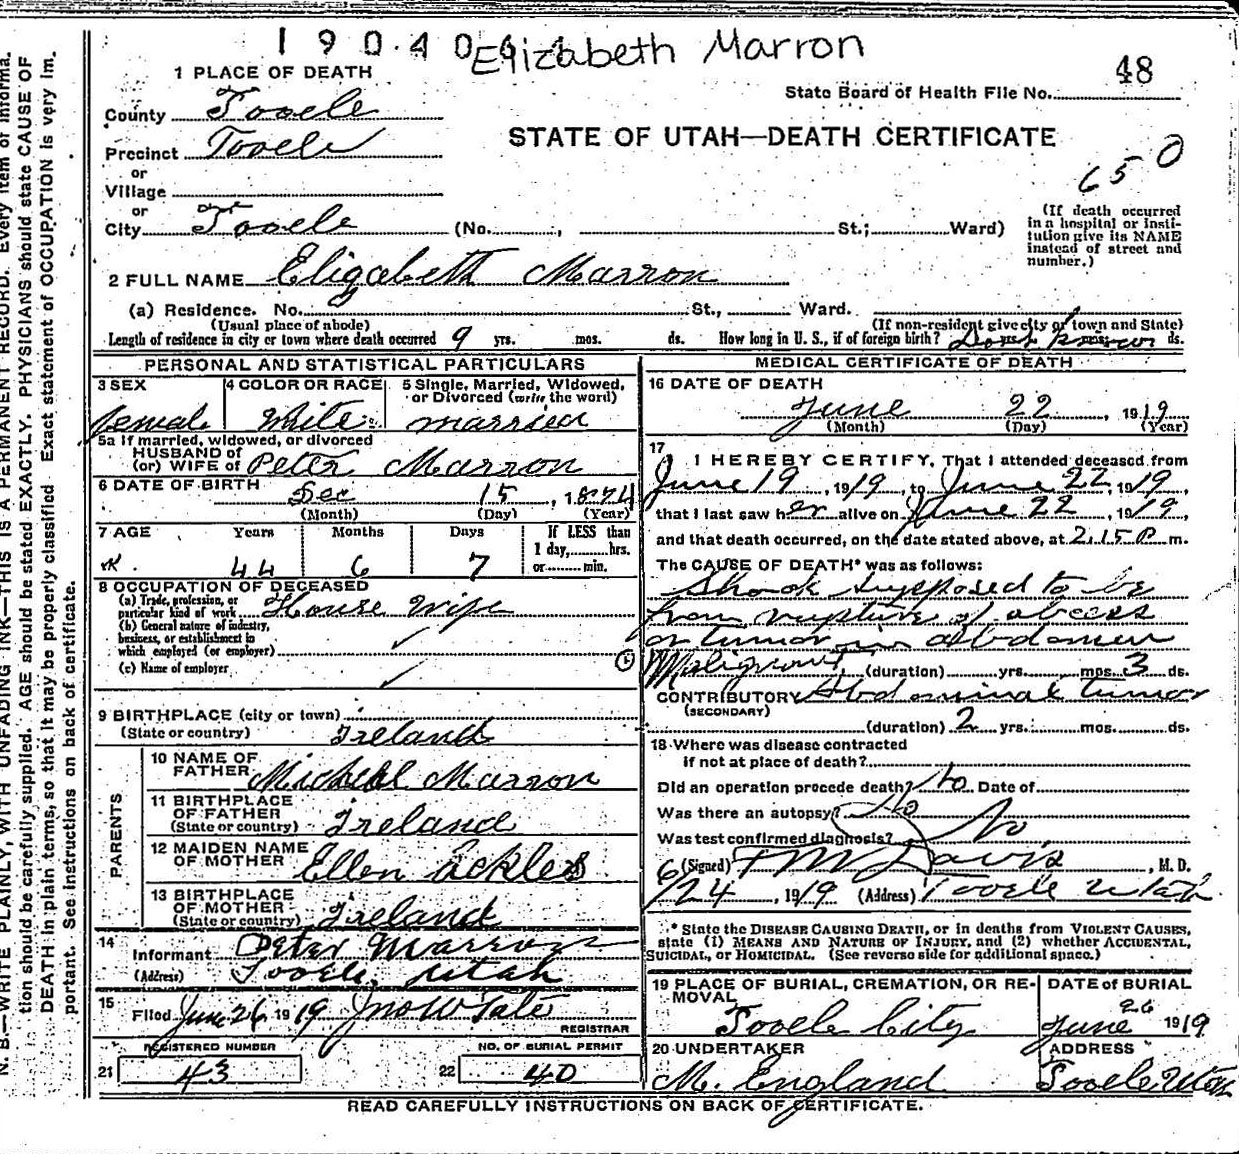 190404 Elizabeth Marron
48
1 PLACE OF DEATH
State Board of Health File No.
County Tooele
STATE OF UTAH—DEATH CERTIFICATE
Precinct Tooele
650
or
Village
or
City Tooele (No. , St.; Ward)
(If death occurred in a hospital or institution give its NAME instead of street and number.)
2 FULL NAME Elizabeth Marron
(a) Residence. No. St., Ward.
(Usual place of abode) (If non-resident give city or town and State)
Length of residence in city or town where death occurred 9 yrs. mos. ds. How long in U. S., if of foreign birth? Dont know ds.
PERSONAL AND STATISTICAL PARTICULARS
3 SEX 4 COLOR OR RACE 5 Single, Married, Widowed, or Divorced (write the word)
female White married
5a If married, widowed, or divorced
HUSBAND of
(or) WIFE of Peter Marron
6 DATE OF BIRTH Dec 15, 1874
(Month) (Day) (Year)
7 AGE Years Months Days If LESS than
1 day, hrs.
44 6 7 or min.
8 OCCUPATION OF DECEASED
(a) Trade, profession, or
particular kind of work House Wife
(b) General nature of industry,
business, or establishment in
which employed (or employer)
(c) Name of employer
9 BIRTHPLACE (city or town)
(State or country) Ireland
PARENTS
10 NAME OF
FATHER Micheal Marron
11 BIRTHPLACE
OF FATHER
(State or country) Ireland
12 MAIDEN NAME
OF MOTHER Ellen Eckles
13 BIRTHPLACE
OF MOTHER
(State or country) Ireland
14 Informant Peter Marron
(Address) Tooele, Utah
15 Filed June 26 1919 Jno W Tate
REGISTRAR
REGISTERED NUMBER NO. OF BURIAL PERMIT
21 43 22 40
MEDICAL CERTIFICATE OF DEATH
16 DATE OF DEATH
June 22, 1919
(Month) (Day) (Year)
17
I HEREBY CERTIFY, That I attended deceased from
June 19, 1919, to June 22, 1919,
that I last saw her alive on June 22, 1919,
and that death occurred, on the date stated above, at 2.15 P m.
The CAUSE OF DEATH* was as follows:
Shock supposed to be
from rupture of abcess
or tumor in abdomen
Malignant (duration) yrs. mos. 3 ds.
CONTRIBUTORY Abdominal tumor
(SECONDARY)
(duration) 2 yrs. mos. ds.
18 Where was disease contracted
if not at place of death?
Did an operation precede death? No Date of
Was there an autopsy? No
Was test confirmed diagnosis? No
(Signed) F M Davis, M. D.
6/24, 1919 (Address) Tooele Utah
* State the DISEASE CAUSING DEATH, or in deaths from VIOLENT CAUSES,
state (1) MEANS AND NATURE OF INJURY, and (2) whether ACCIDENTAL,
SUICIDAL, or HOMICIDAL. (See reverse side for additional space.)
19 PLACE OF BURIAL, CREMATION, OR REMOVAL DATE of BURIAL
Tooele City June 26 1919
20 UNDERTAKER ADDRESS
M. England Tooele Utah
READ CAREFULLY INSTRUCTIONS ON BACK OF CERTIFICATE.
N. B.—WRITE PLAINLY, WITH UNFADING INK—THIS IS A PERMANENT RECORD. Every item of informa-
tion should be carefully supplied. AGE should be stated EXACTLY. PHYSICIANS should state CAUSE OF
DEATH in plain terms, so that it may be properly classified. Exact statement of OCCUPATION is very im-
portant. See instructions on back of certificate.